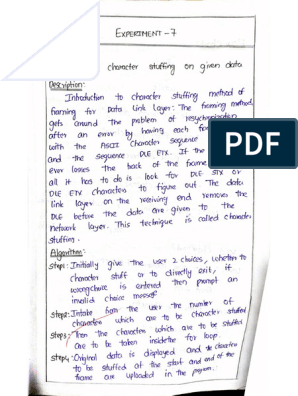 EXPERIMENT - 7
character stuffing on given data
Description:
Introduction to character stuffing method of
framing for Data Link Layer: The framing method
gets around the problem of resychronization
after an error by having each
with the ASCII character sequence
and the sequence DLE ETX. If the
ever losses the back of the frame
all it has to do is look for DLE STX or
DLE ETX characters to figure out The data
link layer on the receiving end removes the
DLE before the data are given to the
network layer. This technique is called character
stuffing.
PDF
Algorithm:
Step1: Initially give the user 2 choices, whether to
character stuff or to directly exit, if
wrong choice is entered then prompt an
invalid choice message
Step2: Intake from the user the number of
characters which are to be character stuffed
Step3: Then the characters which are to be stuffed
are to be taken inside the for loop
Step4: Original data is displayed and the character
to be stuffed at the start and end of the
frame are uploaded in the program.